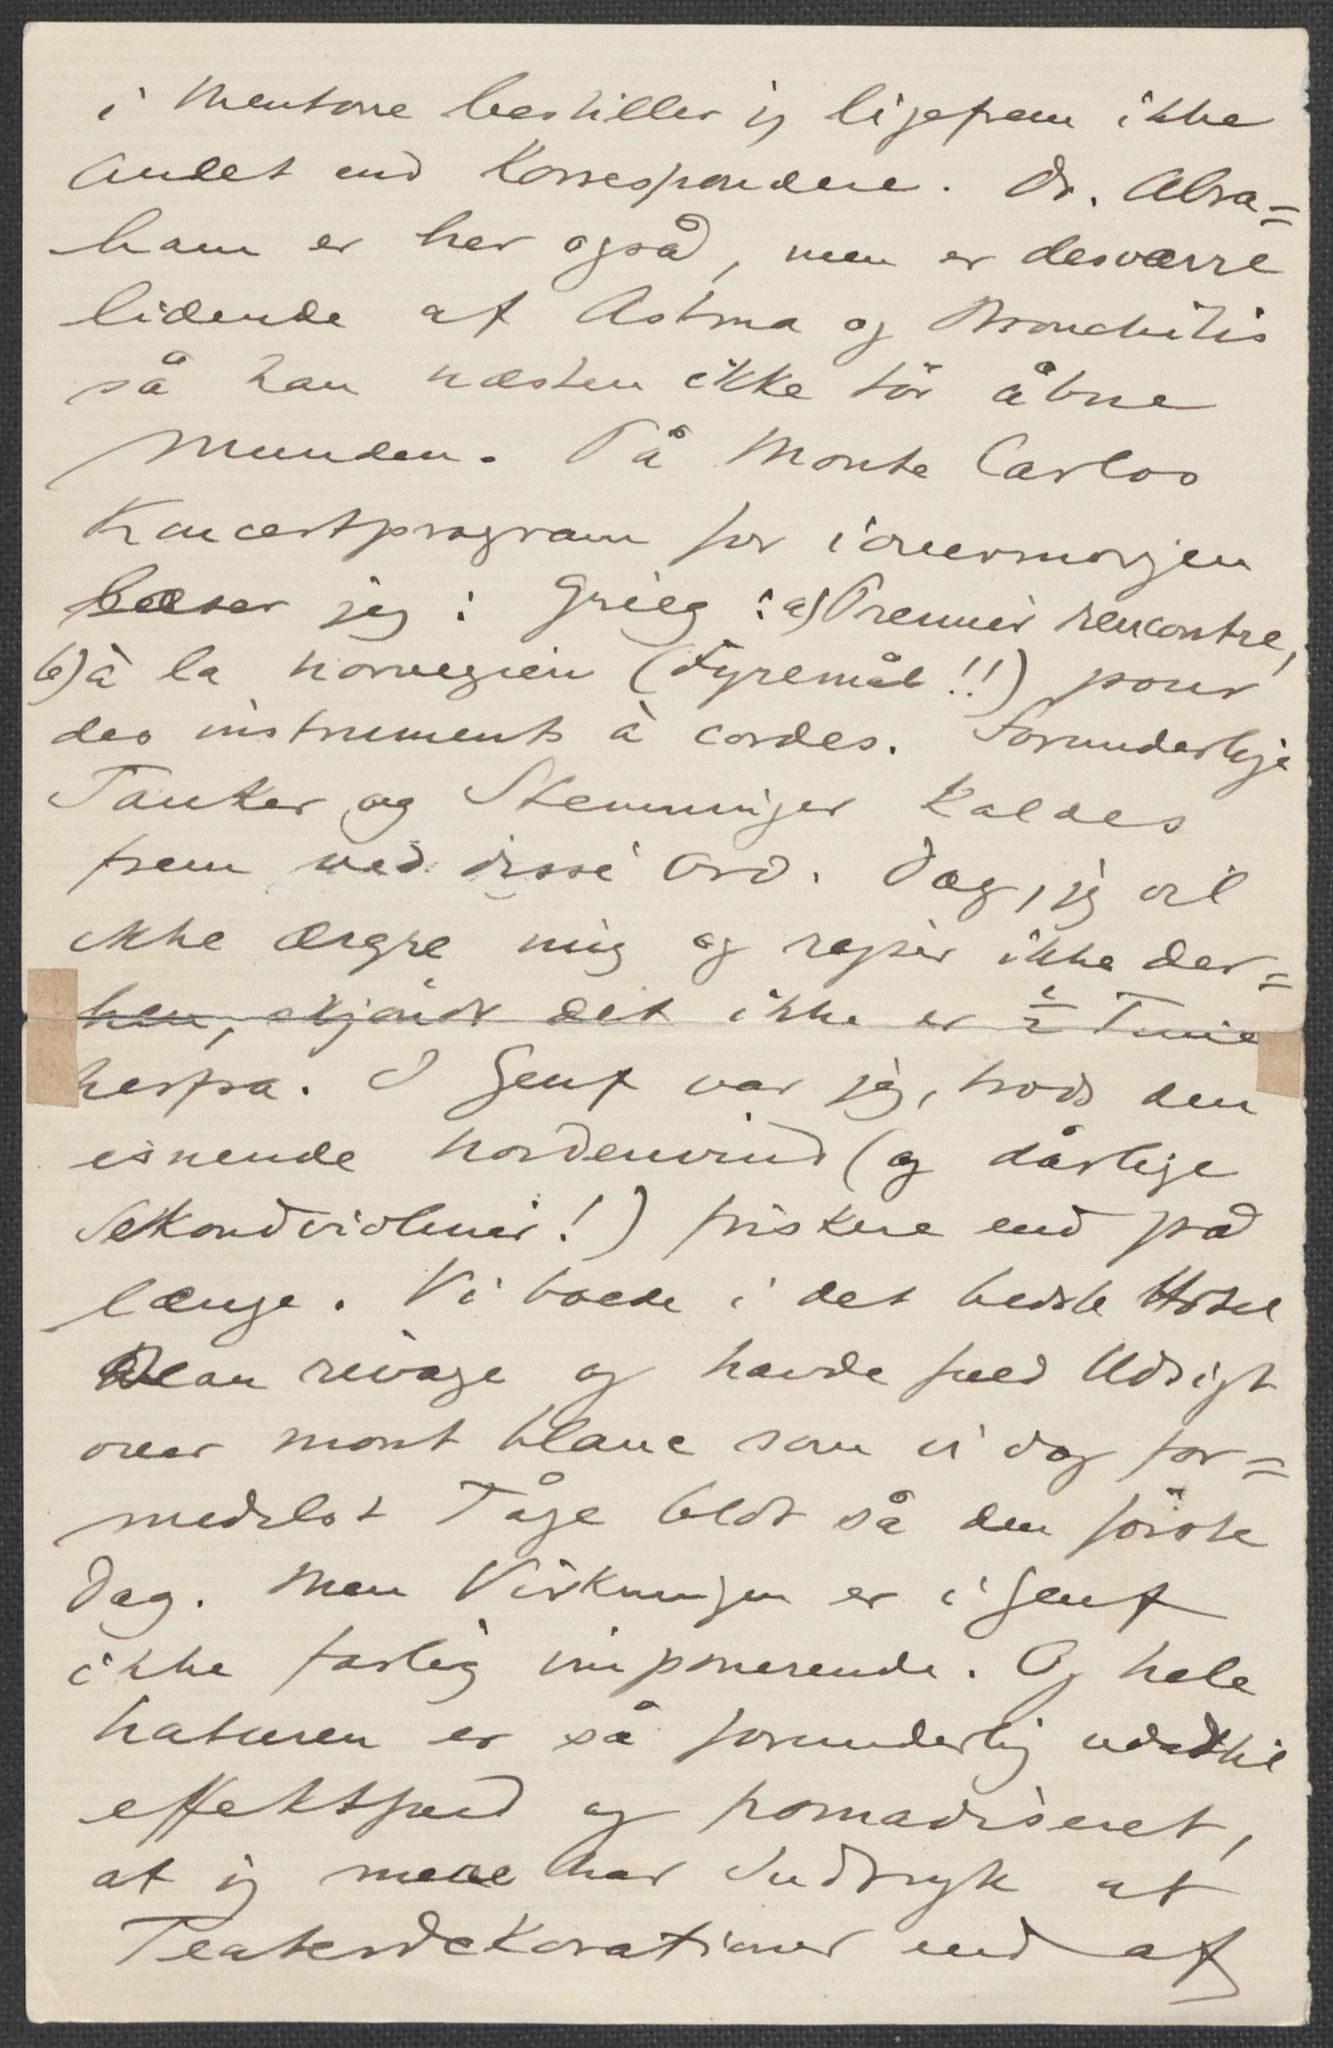 i Mentone bestiller jeg ligefrem ikke
andet end Korrespondere. Dr. Abra=
ham er her også, men er desværre
lidende af Astma og Bronchitis
så han næsten ikke tör åbne
Munden. På Monte Carlos
Koncertprogram for iovermorgen
læser jeg: Grieg: a) Premier rencontre,
b) à la norvegien (Fyremål!!) pour
des instruments à cordes. Forunderlige
Tanker og Stemninger kaldes
frem ved disse Ord. Dog, jeg vil
ikke ærgre mig og rejser ikke der=
hen, skjöndt det ikke er ½ Time
herfra. I Genf var jeg, trods den
isnende Nordenvind (og dårlige
Sekondvioliner!) friskere end på
længe. Vi boede i det bedste Hotel
Beau rivage og havde fuld Udsigt
over Mont blanc som vi dog for=
medelst Tåge blot så den förste
Dag. Men Virkningen er i Genf
ikke farlig imponerende. Og hele
Naturen er så forunderlig udadtil
effektfuld og pomadiseret,
at jeg mere har Indtryk af
Teaterdekorationer end af